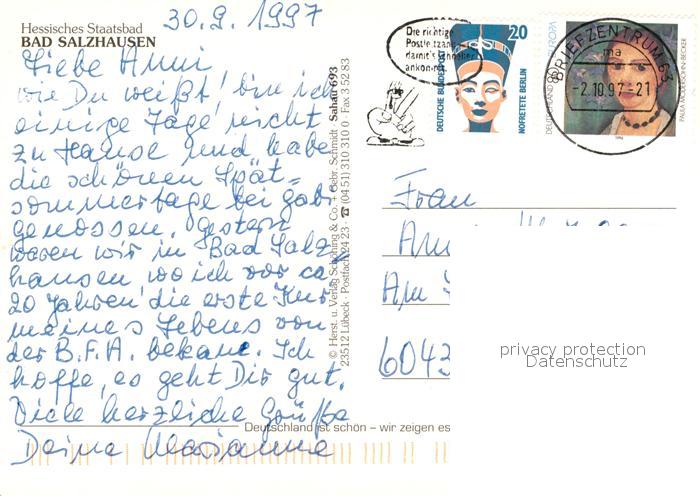 Hessisches Staatsbad
BAD SALZHAUSEN
30.9.1997
Liebe Anni
wie Du weißt bin ich
einige Tage nicht
zu Hause und habe
die schönen Spät=
sommertage bei
genossen. Gestern
waren wir in Bad Salz
hausen wo ich vor ca
20 Jahren die erste Kur
meines Lebens von
der B.F.A. bekam. Ich
hoffe, es geht Dir gut.
Viele herzliche Grüße
Deine Marianne
© Herst. u. Verlag Schöning & Co. + Gebr. Schmidt · Sahau 693
23512 Lübeck · Postfach 24 23 · ☎ (04 51) 310 310 0 · Fax 3 52 83
Deutschland ist schön – wir zeigen es
Die richtige
Postleitzahl
damit's schneller
ankommt
DEUTSCHE BUNDESPOST
20
NOFRETETE BERLIN
DEUTSCHLAND 80
EUROPA
PAULA MODERSOHN-BECKER
1996
BRIEFZENTRUM 63
ma
-2.10.97-21
Frau
Am
6043
privacy protection
Datenschutz